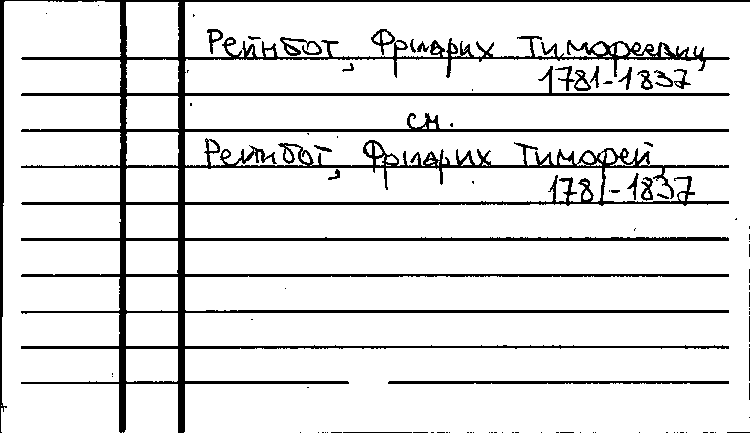 Рейнбот, Фридрих Тимофеевич,
1781-1837
см.
Рейнбот, Фридрих Тимофей,
1781-1837